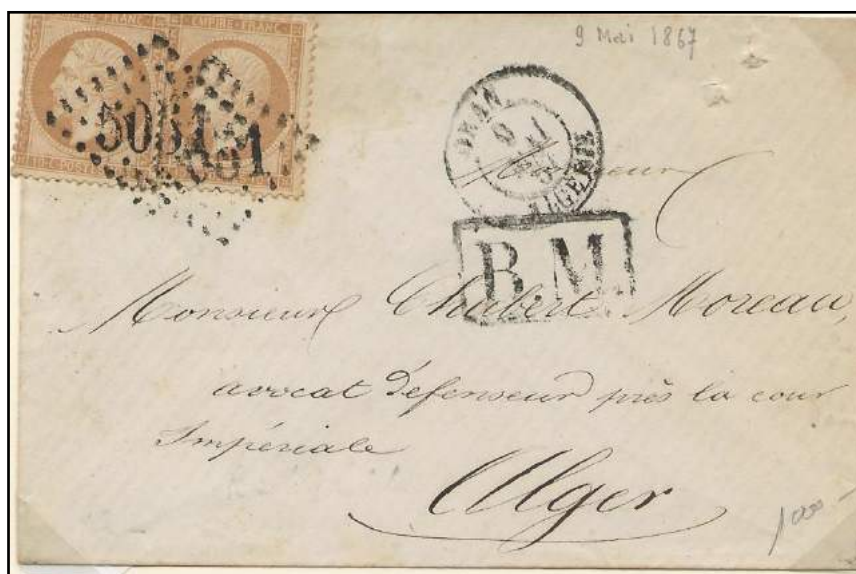 EMPIRE FRANC EMPIRE FRANC
5051
9 Mai 1867
ORAN
9
ALGERIE
B.M.
Monsieur
Monsieur Chabert Moreau,
avocat défenseur près la cour
Impériale
Alger
1000